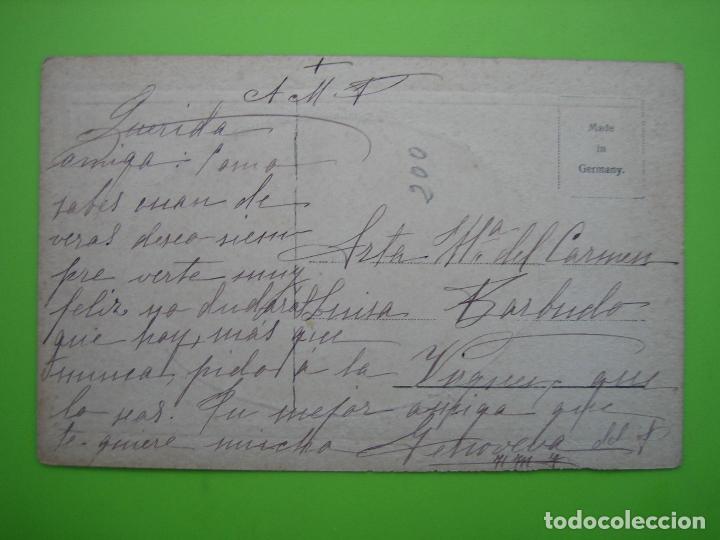 A M P
Querida
amiga: Como
sabes cuan de
veras deseo siem
pre verte muy
feliz, no dudarás
que hoy, más que
nunca, pido á la
Virgen, que
lo seas. Tu mejor amiga que
te quiere mucho Genoveva del
Srta Mª del Carmen
Luisa Barbudo
200
Made
in
Germany.
todocoleccion.net